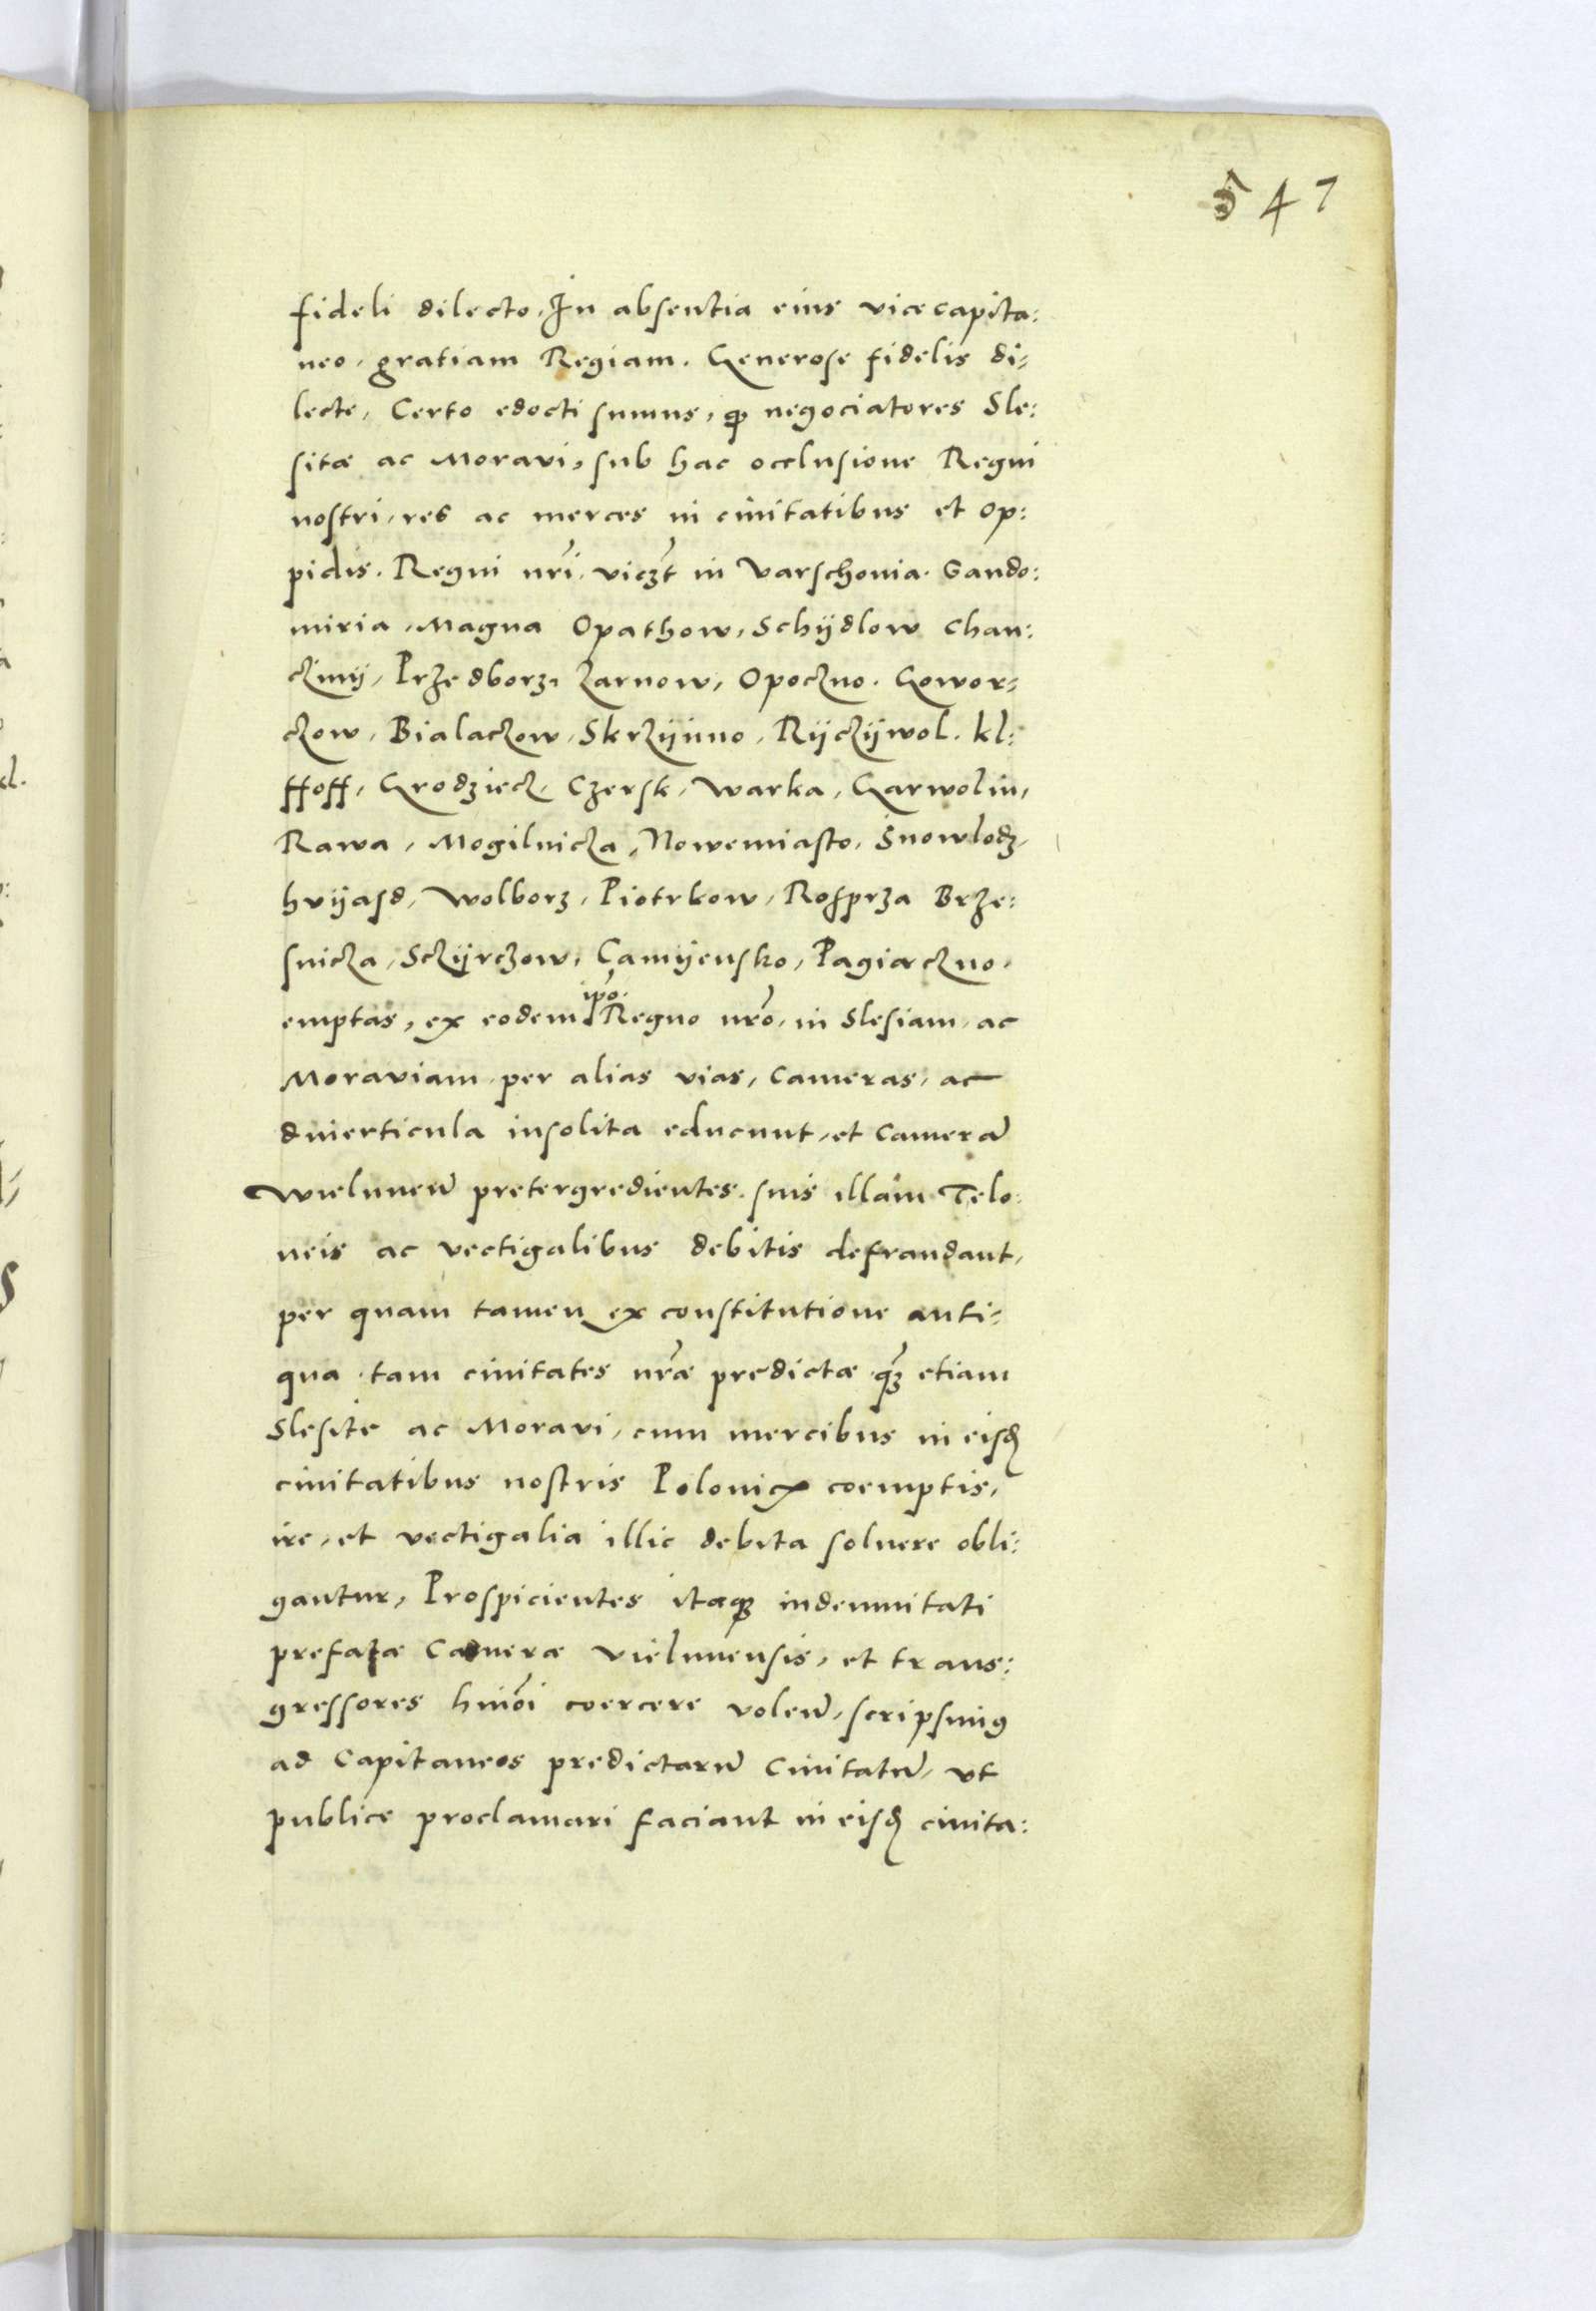 547
fideli dilecto. In absentia eius vicecapita:
neo, gratiam Regiam. Generose fidelis di-
lecte, Certo edocti sumus, ꝙ negociatores Sle:
sitæ ac Moravi, sub hac occlusione Regni
nostri, res ac merces in ciuitatibus et op:
pidis. Regni nr̃i. viczt in Varschouia. Sando:
miria, Magna Opathow, Schÿdlow Chan:
czinÿ, Przedborz, Zarnow, Opoczno. Gowor-
czow, Bialaczow, Skrzÿnno, Rÿczÿwol. kl:
ffoff, Grodziecz, Czersk, Warka, Garwolin,
Rawa, Mogilnicza, Nowemiasto, Snowlodz,
hvÿasd, Wolborz, Piotrkow, Rosprza Brze:
snicza, Sczÿrczow, Camÿensko, Pagiæczno,
emptas, ex eodem ip̃o. Regno nr̃o, in Slesiam, ac
Moraviam per alias vias, Cameras, ac
diuerticula insolita educunt, et Camerã
Wielunen̄ pretergredientes. suis illam Telo:
neis ac vectigalibus debitis defraudant,
per quam tamen ex constitutione anti-
qua tam ciuitates nr̃æ predictæ qz̃ etiam
Slesite ac Moravi, cum mercibus in eisd
ciuitatibus nostris Polonicꝭ coemptis,
ire, et vectigalia illic debita soluere obli:
gantur, Prospicientes itaqꝫ indemnitati
prefatæ Cameræ Vielunensis, et trans:
gressores huiõi coercere volen̄, scripsimꝰ
ad Capitaneos predictarũ Ciuitatũ, vt
publice proclamari faciant in eisd ciuita: